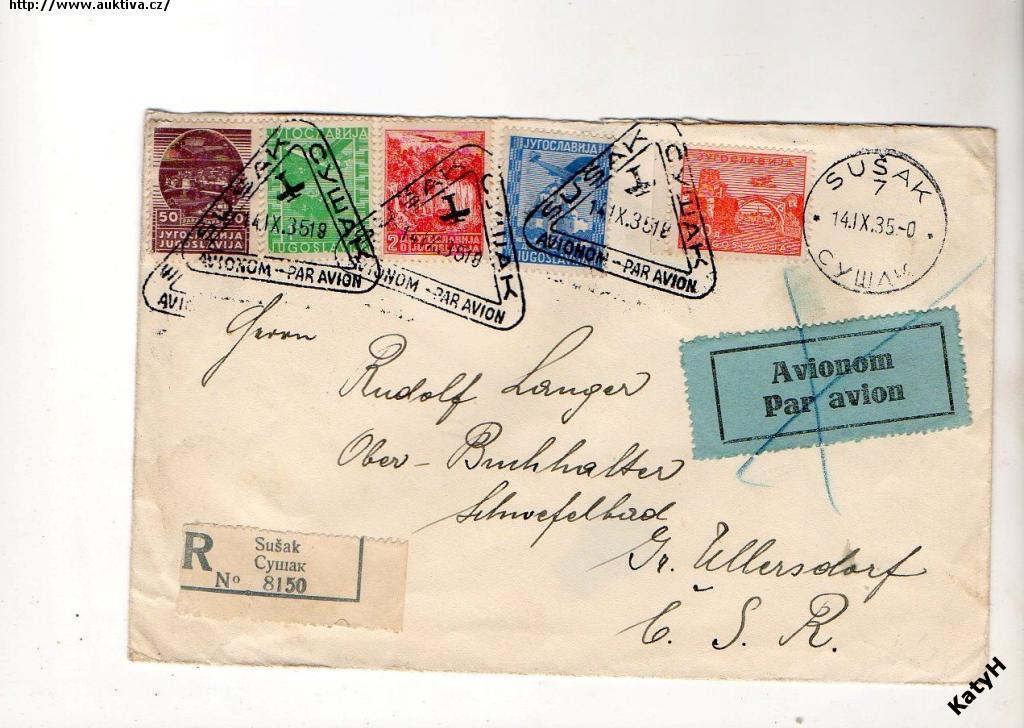 http://www.auktiva.cz/
50
ЈУГОСЛАВИЈА
JUGOSLAVIJA
ЈУГОСЛАВИЈА
JUGOSLAVIJA
2
ЈУГОСЛАВИЈА
JUGOSLAVIJA
ЈУГОСЛАВИЈА
JUGOSLAVIJA
ЈУГОСЛАВИЈА
JUGOSLAVIJA
SUŠAK
СУШАК
14.IX.3519
AVIONOM - PAR AVION
SUŠAK
СУШАК
AVIONOM - PAR AVION
SUŠAK
СУШАК
14.IX.3519
AVIONOM - PAR AVION
SUŠAK
7
14.IX.35-0
СУШАК
Avionom
Par avion
Herrn
Rudolf Langer
Ober-Buchhalter
Schwefelbad
Gr. Ullersdorf
Č. S. R.
R
Sušak
Сушак
No 8150
KatyH